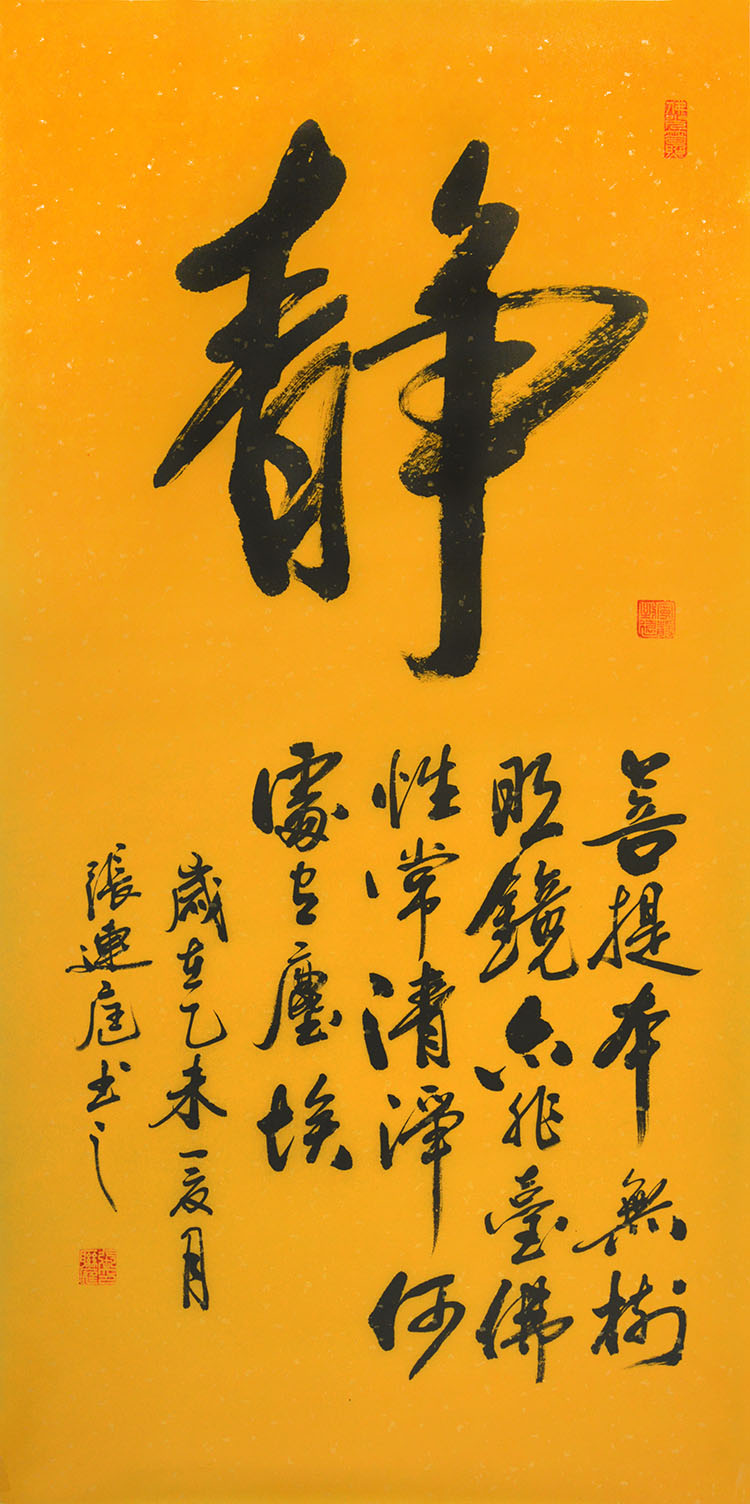 静
菩提本無樹
明鏡亦非臺佛
性常清淨何
處有塵埃
歲在乙未夏月
張連庭书之